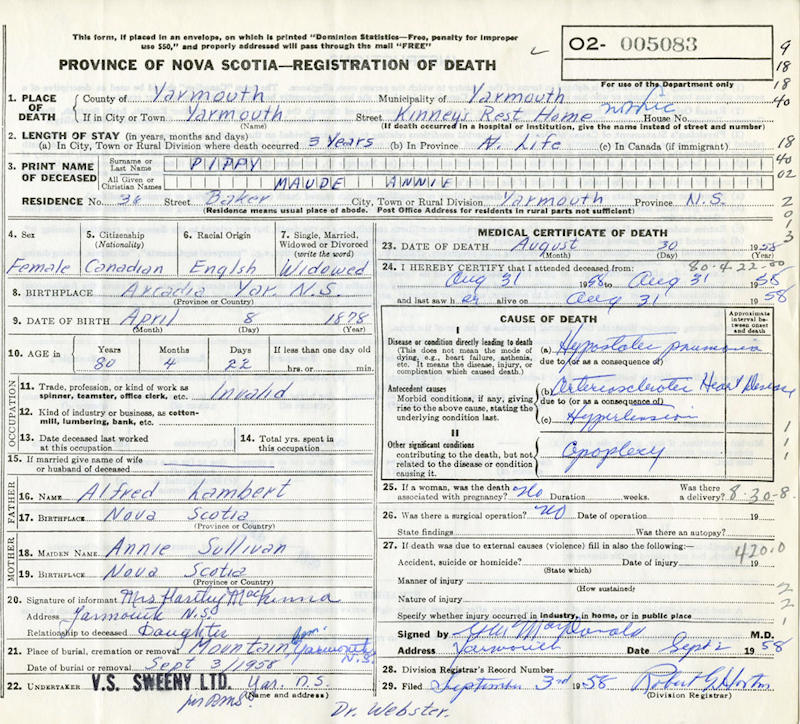 This form, if placed in an envelope, on which is printed "Dominion Statistics—Free, penalty for improper
use $50," and properly addressed will pass through the mail "FREE"
PROVINCE OF NOVA SCOTIA—REGISTRATION OF DEATH
02- 005083
For use of the Department only
9
18
18
40
1. PLACE OF DEATH
County of Yarmouth Municipality of Yarmouth
If in City or Town Yarmouth Street Kinney's Rest Home House No.
(Name) (If death occurred in a hospital or institution, give the name instead of street and number)
2. LENGTH OF STAY (in years, months and days)
(a) In City, Town or Rural Division where death occurred 3 Years (b) In Province At. Life (c) In Canada (if immigrant)
18
40
02
2
0
1
3
3. PRINT NAME OF DECEASED
Surname or Last Name PIPPY
All Given or Christian Names MAUDE ANNIE
RESIDENCE No. 36 Street Baker City, Town or Rural Division Yarmouth Province N.S.
(Residence means usual place of abode. Post Office Address for residents in rural parts not sufficient)
4. Sex 5. Citizenship (Nationality) 6. Racial Origin 7. Single, Married, Widowed or Divorced (write the word)
Female Canadian Englsh Widowed
8. BIRTHPLACE Arcadia Yar. N.S.
(Province or Country)
9. DATE OF BIRTH April 8 1878
(Month) (Day) (Year)
10. AGE in Years Months Days If less than one day old
80 4 22 hrs. or min.
OCCUPATION
11. Trade, profession, or kind of work as spinner, teamster, office clerk, etc. Invalid
12. Kind of industry or business, as cotton-mill, lumbering, bank, etc.
13. Date deceased last worked at this occupation 14. Total yrs. spent in this occupation
15. If married give name of wife or husband of deceased
FATHER
16. NAME Alfred Lambert
17. BIRTHPLACE Nova Scotia
(Province or Country)
MOTHER
18. MAIDEN NAME Annie Sullivan
19. BIRTHPLACE Nova Scotia
(Province or Country)
20. Signature of informant Mrs Hartley MacKinnon
Address Yarmouth N.S.
Relationship to deceased Daughter
21. Place of burial, cremation or removal Mountain Cem. Yarmouth N.S.
Date of burial or removal Sept 3/1958
22. UNDERTAKER V.S. SWEENY LTD. Yar. N.S.
(Name and address)
Dr. Webster.
MEDICAL CERTIFICATE OF DEATH
23. DATE OF DEATH August 30 1958
(Month) (Day) (Year)
80-4-22-00
24. I HEREBY CERTIFY that I attended deceased from:
Aug 31 1958 to Aug 31 1958
and last saw h er alive on Aug 31 1958
CAUSE OF DEATH
Approximate interval between onset and death
I
Disease or condition directly leading to death
(This does not mean the mode of dying, e.g., heart failure, asthenia, etc. It means the disease, injury, or complication which caused death.)
(a) Hypostatic pneumonia
due to (or as a consequence of)
Antecedent causes
Morbid conditions, if any, giving rise to the above cause, stating the underlying condition last.
(b) Arteriosclerotic Heart Disease
due to (or as a consequence of)
(c) Hypertension
II
Other significant conditions
contributing to the death, but not related to the disease or condition causing it.
Apoplexy
1
1
1
25. If a woman, was the death associated with pregnancy? No Duration weeks. Was there a delivery? 8-30-8
26. Was there a surgical operation? No Date of operation 19
State findings Was there an autopsy?
27. If death was due to external causes (violence) fill in also the following:—
420.0
Accident, suicide or homicide? Date of injury 19
(State which)
Manner of injury
(How sustained)
Nature of injury
Specify whether injury occurred in industry, in home, or in public place
2
2
1
Signed by MacDonald M.D.
Address Yarmouth Date Sept 2 1958
28. Division Registrar's Record Number
29. Filed September 3rd 1958 Robert G. Horton
(Division Registrar)